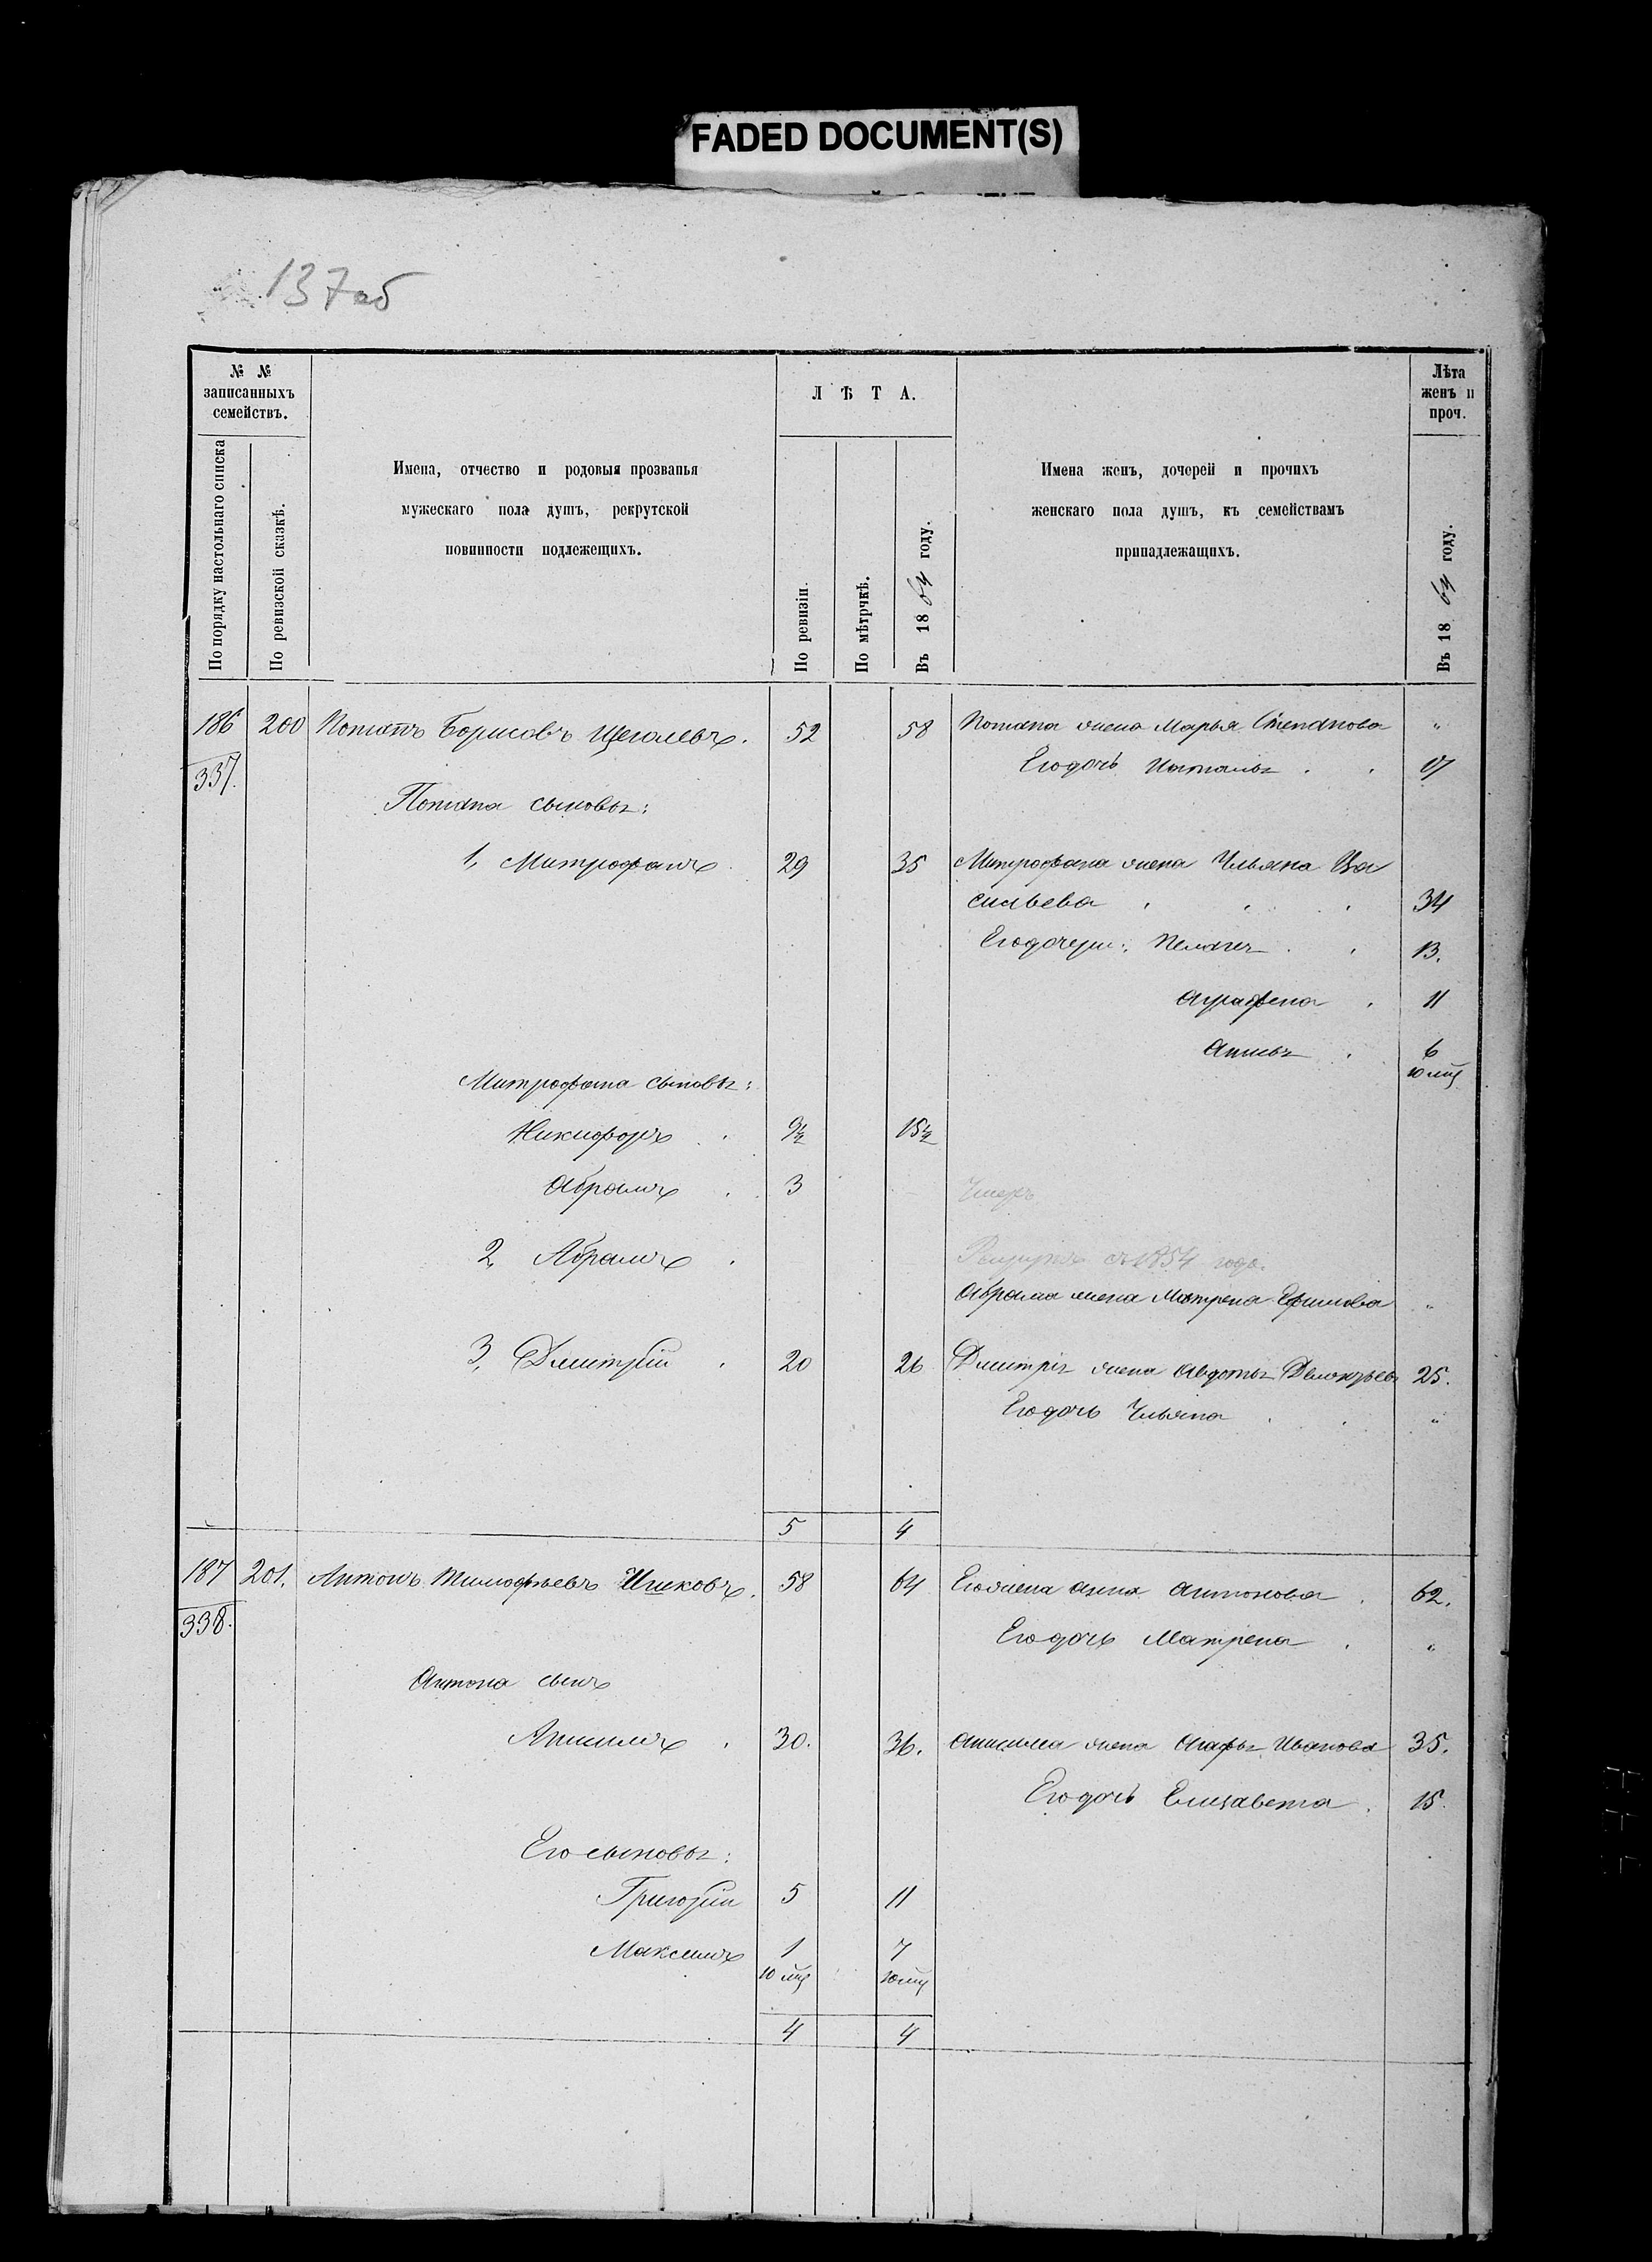 FADED DOCUMENT(S)
137об
№ №
записанныхъ
семействъ.
По порядку настольнаго списка
По ревизской сказкѣ.
Имена, отчество и родовыя прозванья
мужескаго пола душъ, рекрутской
повинности подлежещихъ.
ЛѢТА.
По ревизіи.
По мѣтрчкѣ.
Въ 1864 году.
Имена женъ, дочерей и прочихъ
женскаго пола душъ, къ семействамъ
принадлежащихъ.
Лѣта
женъ и
проч.
Въ 1864 году.
186 200 Потапъ Борисовъ Щеголевъ. 52 58 Потапа жена Марья Степанова "
337. Его дочь Наталья 17
Потапа сыновья:
1, Митрофанъ 29 35 Митрофана жена Ульяна Ва
сильева 34
Его дочери: Пелагея 13.
Аграфена 11
Анисья 6
10 мц
Митрофана сыновья:
Никифоръ 9½ 15½
Абрамъ 3 Умеръ
2, Абрамъ Рекрутъ съ 1854 года.
Абрама жена Матрена Ефимова "
3, Дмитрій 20 26 Дмитрія жена Авдотья 25.
Его дочь Ульяна "
5 4
187 201. Антонъ Тимофѣевъ 58 64 Его жена Анна Антонова 62.
338. Его дочь Матрена "
Антона сынъ
Анисимъ 30. 36. Анисима жена Агафья Иванова 35.
Его дочь Елизавета 15.
Его сыновья:
Григорій 5 11
Максимъ 1 7
10 мц 10 мц
4 4